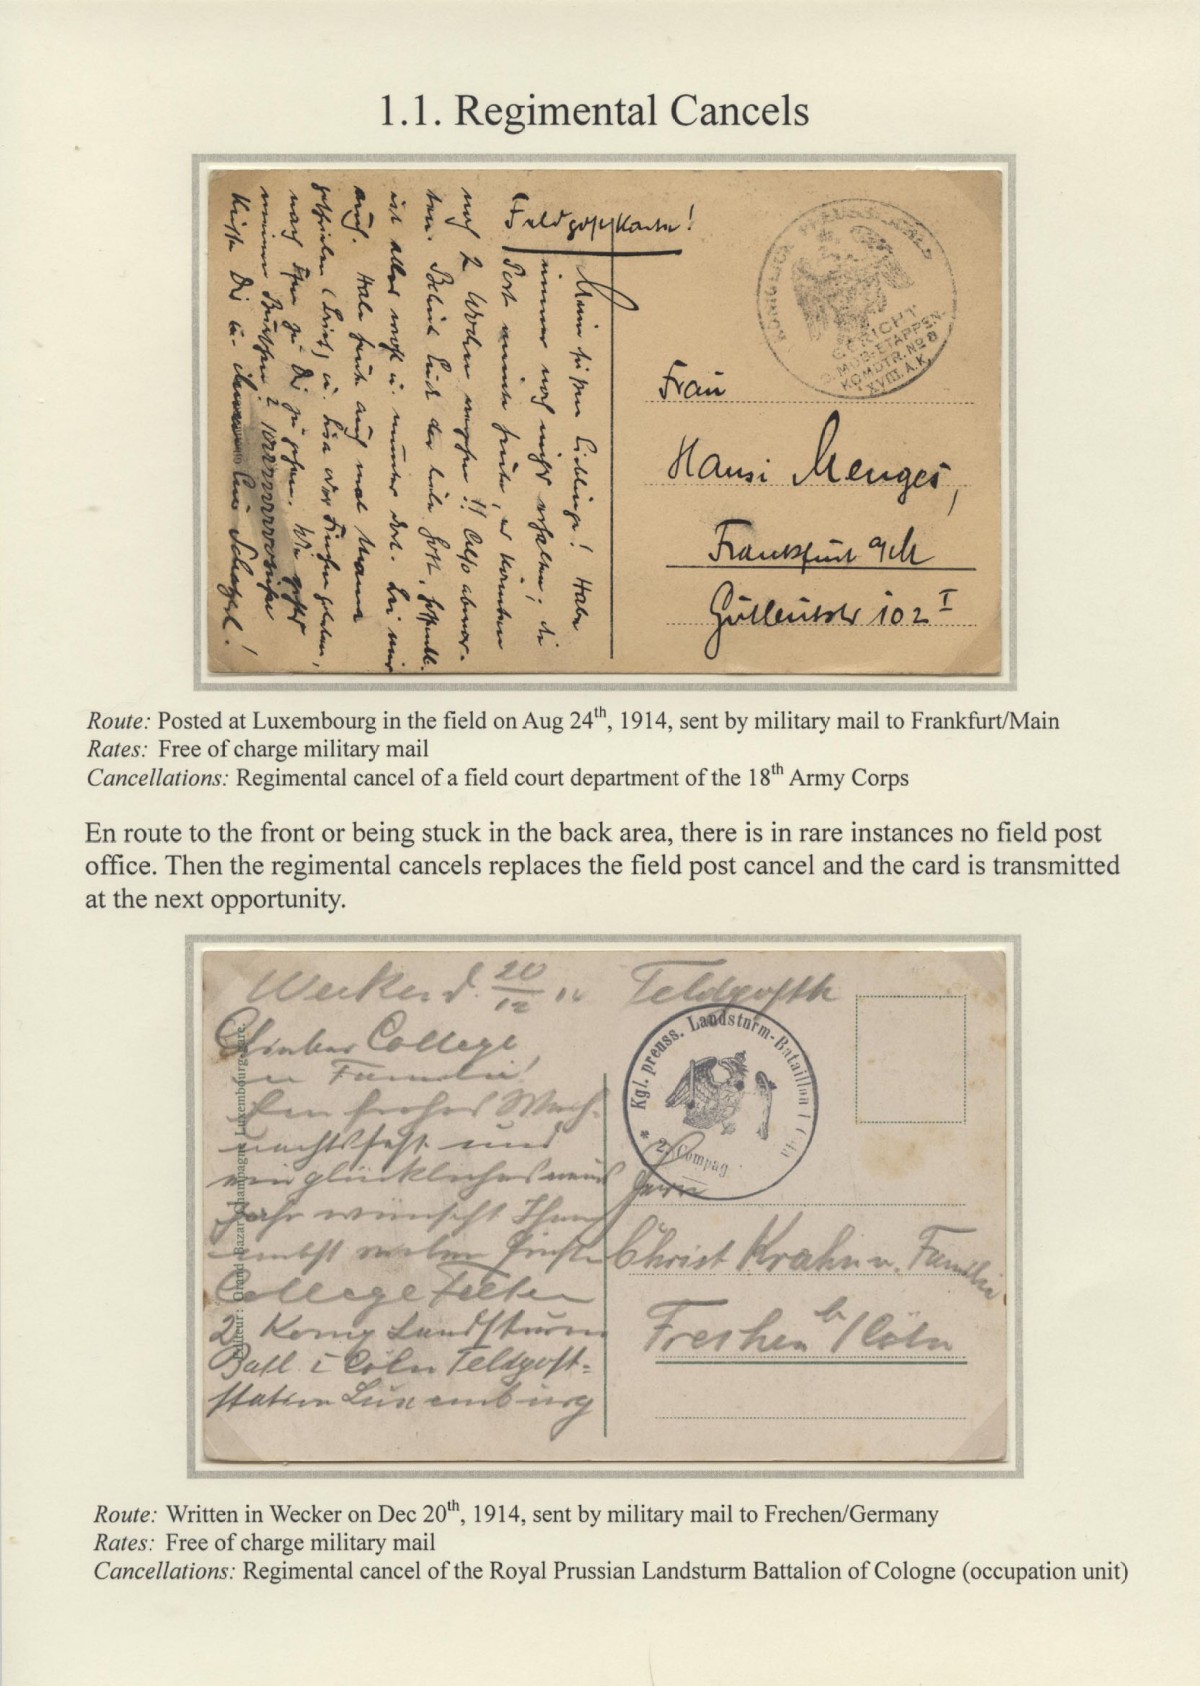 1.1. Regimental Cancels
Feldpostkarte!
Mein süßer Liebling! Habe
immer noch nicht erhalten, die
Post meinte heute, es könnten
noch 2 Wochen vergehen!! Also abwar-
ten.
ist alles wohl u. munter dort. Bei mir
auch. Habe heute auch mal Mama
geschrieben
nach
meinem
Küsse Dich u.
KÖNIGLICH PREUSSISCHES
GERICHT
D. MOB. ETAPPEN-
KOMDTR. No 8
XVIII. A.K.
Frau
Hansi Menges,
Frankfurt a/M
Gutleutstr 102 I
Route: Posted at Luxembourg in the field on Aug 24th, 1914, sent by military mail to Frankfurt/Main
Rates: Free of charge military mail
Cancellations: Regimental cancel of a field court department of the 18th Army Corps
En route to the front or being stuck in the back area, there is in rare instances no field post
office. Then the regimental cancels replaces the field post cancel and the card is transmitted
at the next opportunity.
Wecker d. 20/12 14 Feldpostk
Lieber College
u Familie!
Ein frohes Weih-
nachtsfest und
ein glückliches neues
Jahr wünscht Ihnen
nebst vielen Grüßen
College Felten
2 Komp Landsturm
Batl I Cöln Feldpost-
station Luxemburg
Editeur: Grand Bazar Champagne, Luxembourg-Gare.
Kgl. preuss. Landsturm-Bataillon I Cöln
* 2. Compag.
Herrn
Christ Krahn u. Familie
Frechen b/Cöln
Route: Written in Wecker on Dec 20th, 1914, sent by military mail to Frechen/Germany
Rates: Free of charge military mail
Cancellations: Regimental cancel of the Royal Prussian Landsturm Battalion of Cologne (occupation unit)